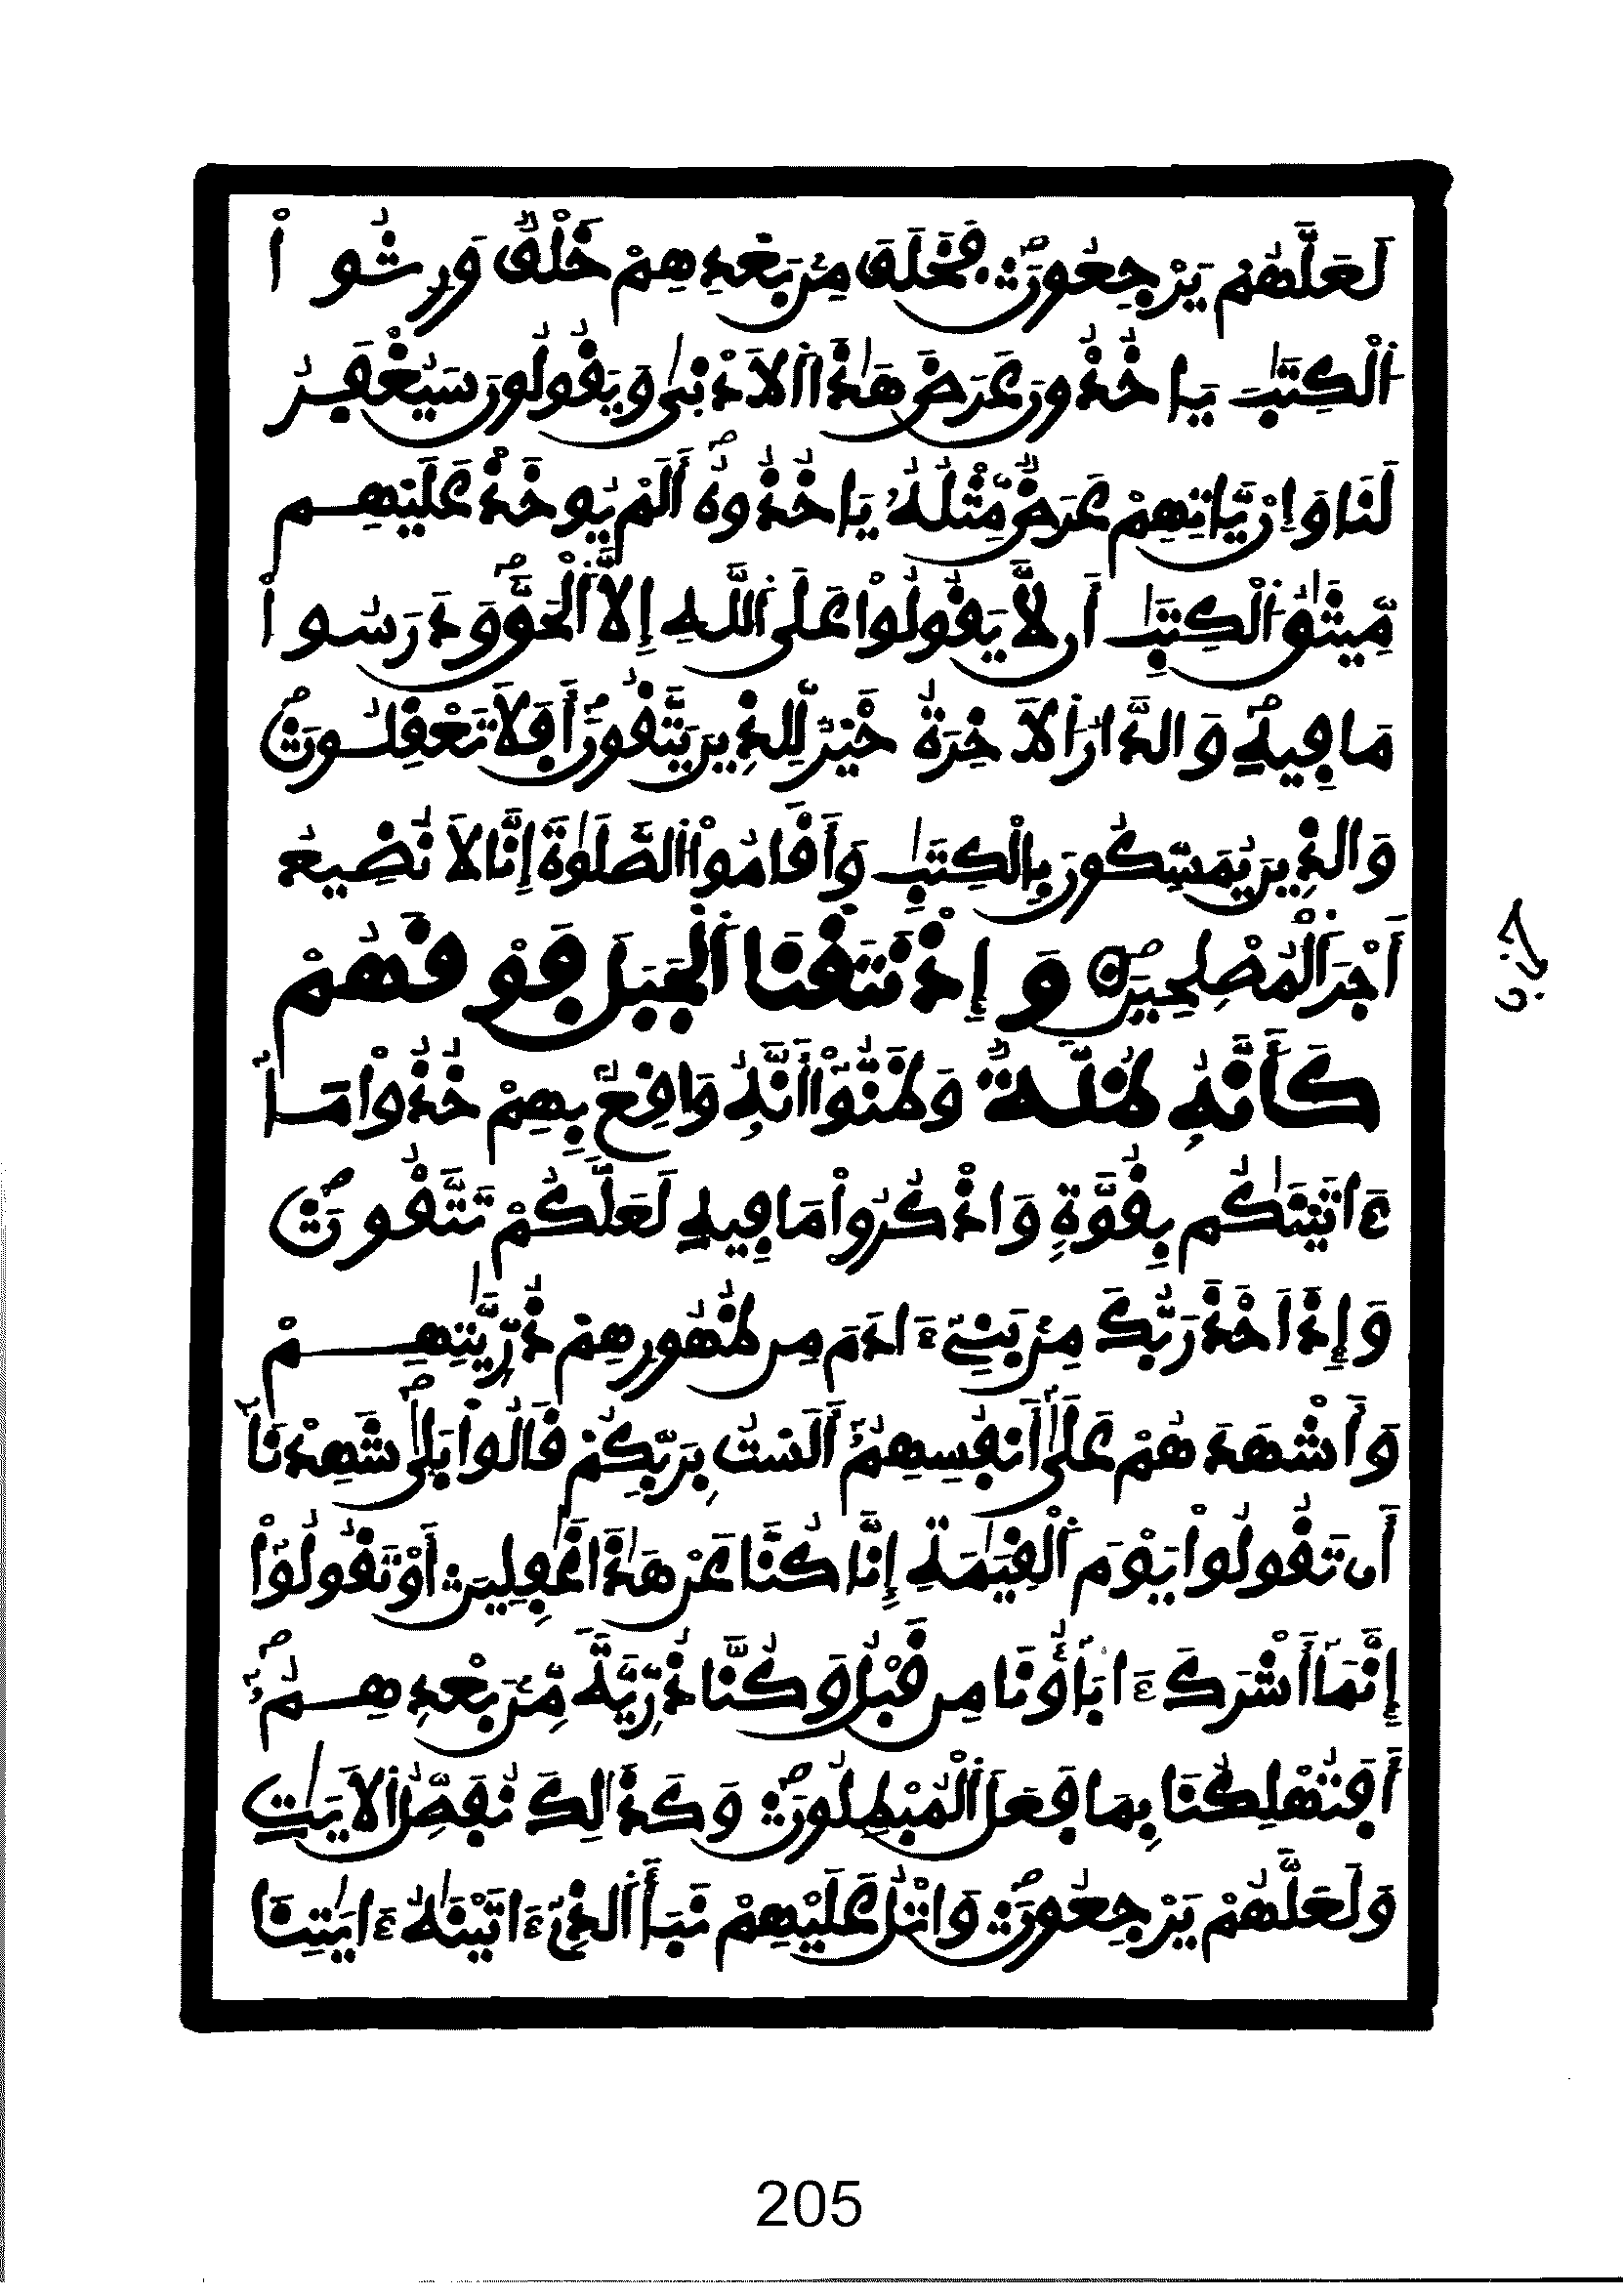 لَعَلَّهُمْ يَرْجِعُونَۖ فَخَلَفَ مِنۢ بَعْدِهِمْ خَلْفٞ وَرِثُواْ
اُ۬لْكِتَٰبَ يَاخُذُونَ عَرَضَ هَٰذَا اَ۬لَادْنۭيٰ وَيَقُولُونَ سَيُغْفَرُ
لَنَا وَإِنْ يَّاتِهِمْ عَرَضٞ مِّثْلُهُۥ يَاخُذُوهُۖ أَلَمْ يُوخَذْ عَلَيْهِم
مِّيثَٰقُ اُ۬لْكِتَٰبِ أَن لَّا يَقُولُواْ عَلَي اَ۬للَّهِ إِلَّا اَ۬لْحَقَّۖ وَدَرَسُواْ
مَا فِيهِۖ وَالدَّارُ اُ۬لَاخِرَةُ خَيْرٞ لِّلذِينَ يَتَّقُونَۖ أَفَلَا تَعْقِلُونَۖ
وَالذِينَ يُمَسِّكُونَ بِالْكِتَٰبِ وَأَقَامُواْ اُ۬لصَّلَوٰةَ إِنَّا لَا نُضِيعُ
أَجْرَ اَ۬لْمُصْلِحِينَۖ وَإِذْ نَتَقْنَا اَ۬لْجَبَلَ فَوْقَهُمْ
كَأَنَّهُۥ ظُلَّةٞ وَظَنُّوٓاْ أَنَّهُۥ وَاقِعُۢ بِهِمْ خُذُواْ مَآ
ءَاتَيْنَٰكُم بِقُوَّةٖ وَاذْكُرُواْ مَا فِيهِ لَعَلَّكُمْ تَتَّقُونَۖ
وَإِذَ اَخَذَ رَبُّكَ مِنۢ بَنِيٓ ءَادَمَ مِن ظُهُورِهِمْ ذُرِّيَّٰتِهِمْ
وَأَشْهَدَهُمْ عَلَيٰٓ أَنفُسِهِمُۥٓ أَلَسْتُ بِرَبِّكُمْ قَالُواْ بَلَيٰۖ شَهِدْنَآ
أَن تَقُولُواْ يَوْمَ اَ۬لْقِيَٰمَةِ إِنَّا كُنَّا عَنْ هَٰذَا غَٰفِلِينَ أَوْ تَقُولُوٓاْ
إِنَّمَآ أَشْرَكَ ءَابَآؤُنَا مِن قَبْلُ وَكُنَّا ذُرِّيَّةٗ مِّنۢ بَعْدِهِمُۥٓۖ
أَفَتُهْلِكُنَا بِمَا فَعَلَ اَ۬لْمُبْطِلُونَۖ وَكَذَٰلِكَ نُفَصِّلُ اُ۬لَايَٰتِ
وَلَعَلَّهُمْ يَرْجِعُونَۖ وَاتْلُ عَلَيْهِمْ نَبَأَ اَ۬لذِيٓ ءَاتَيْنَٰهُ ءَايَٰتِنَا
205